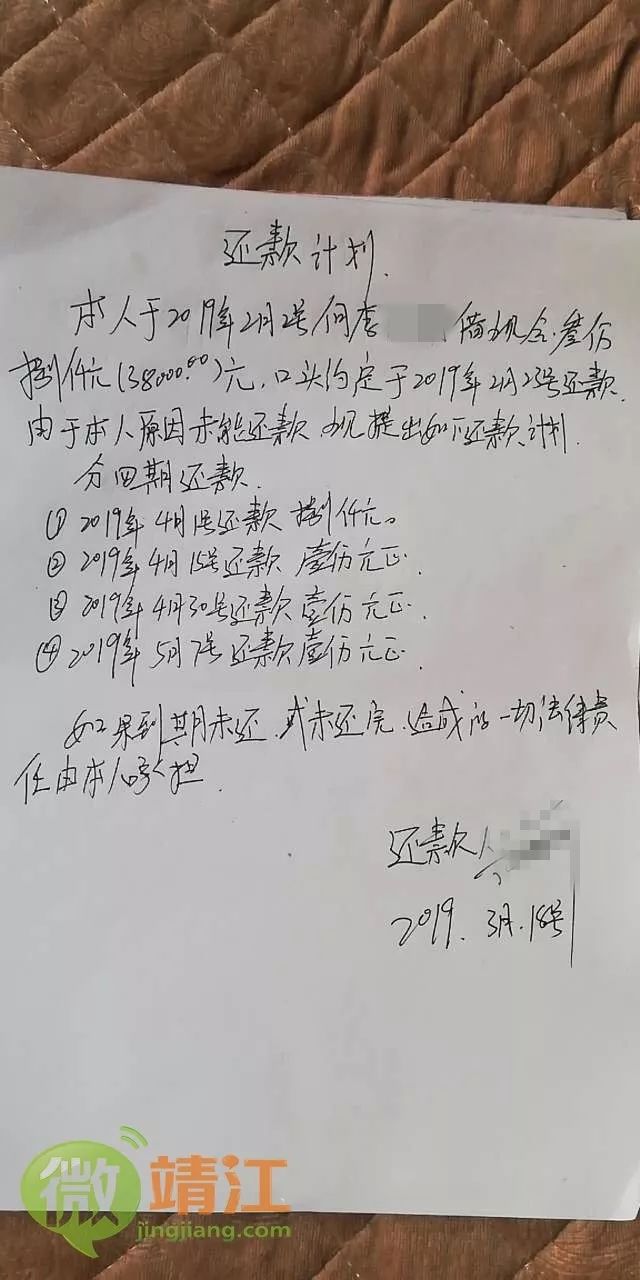 还款计划.
本人于2019年2月2号向李 借现金.叁仟
捌仟元(38000.00)元,口头约定于2019年2月23号还款.
由于本人原因未能还款.现提出如下还款计划.
分四期还款.
① 2019年4月1号还款 捌仟元。
② 2019年4月15号还款 壹仟元正.
③ 2019年4月30号还款壹仟元正.
④ 2019年5月7号还款壹仟元正.
如果到期未还.或未还完.造成的一切法律责
任由本人承担.
还款人
2019.3月.18号
微靖江
jingjiang.com